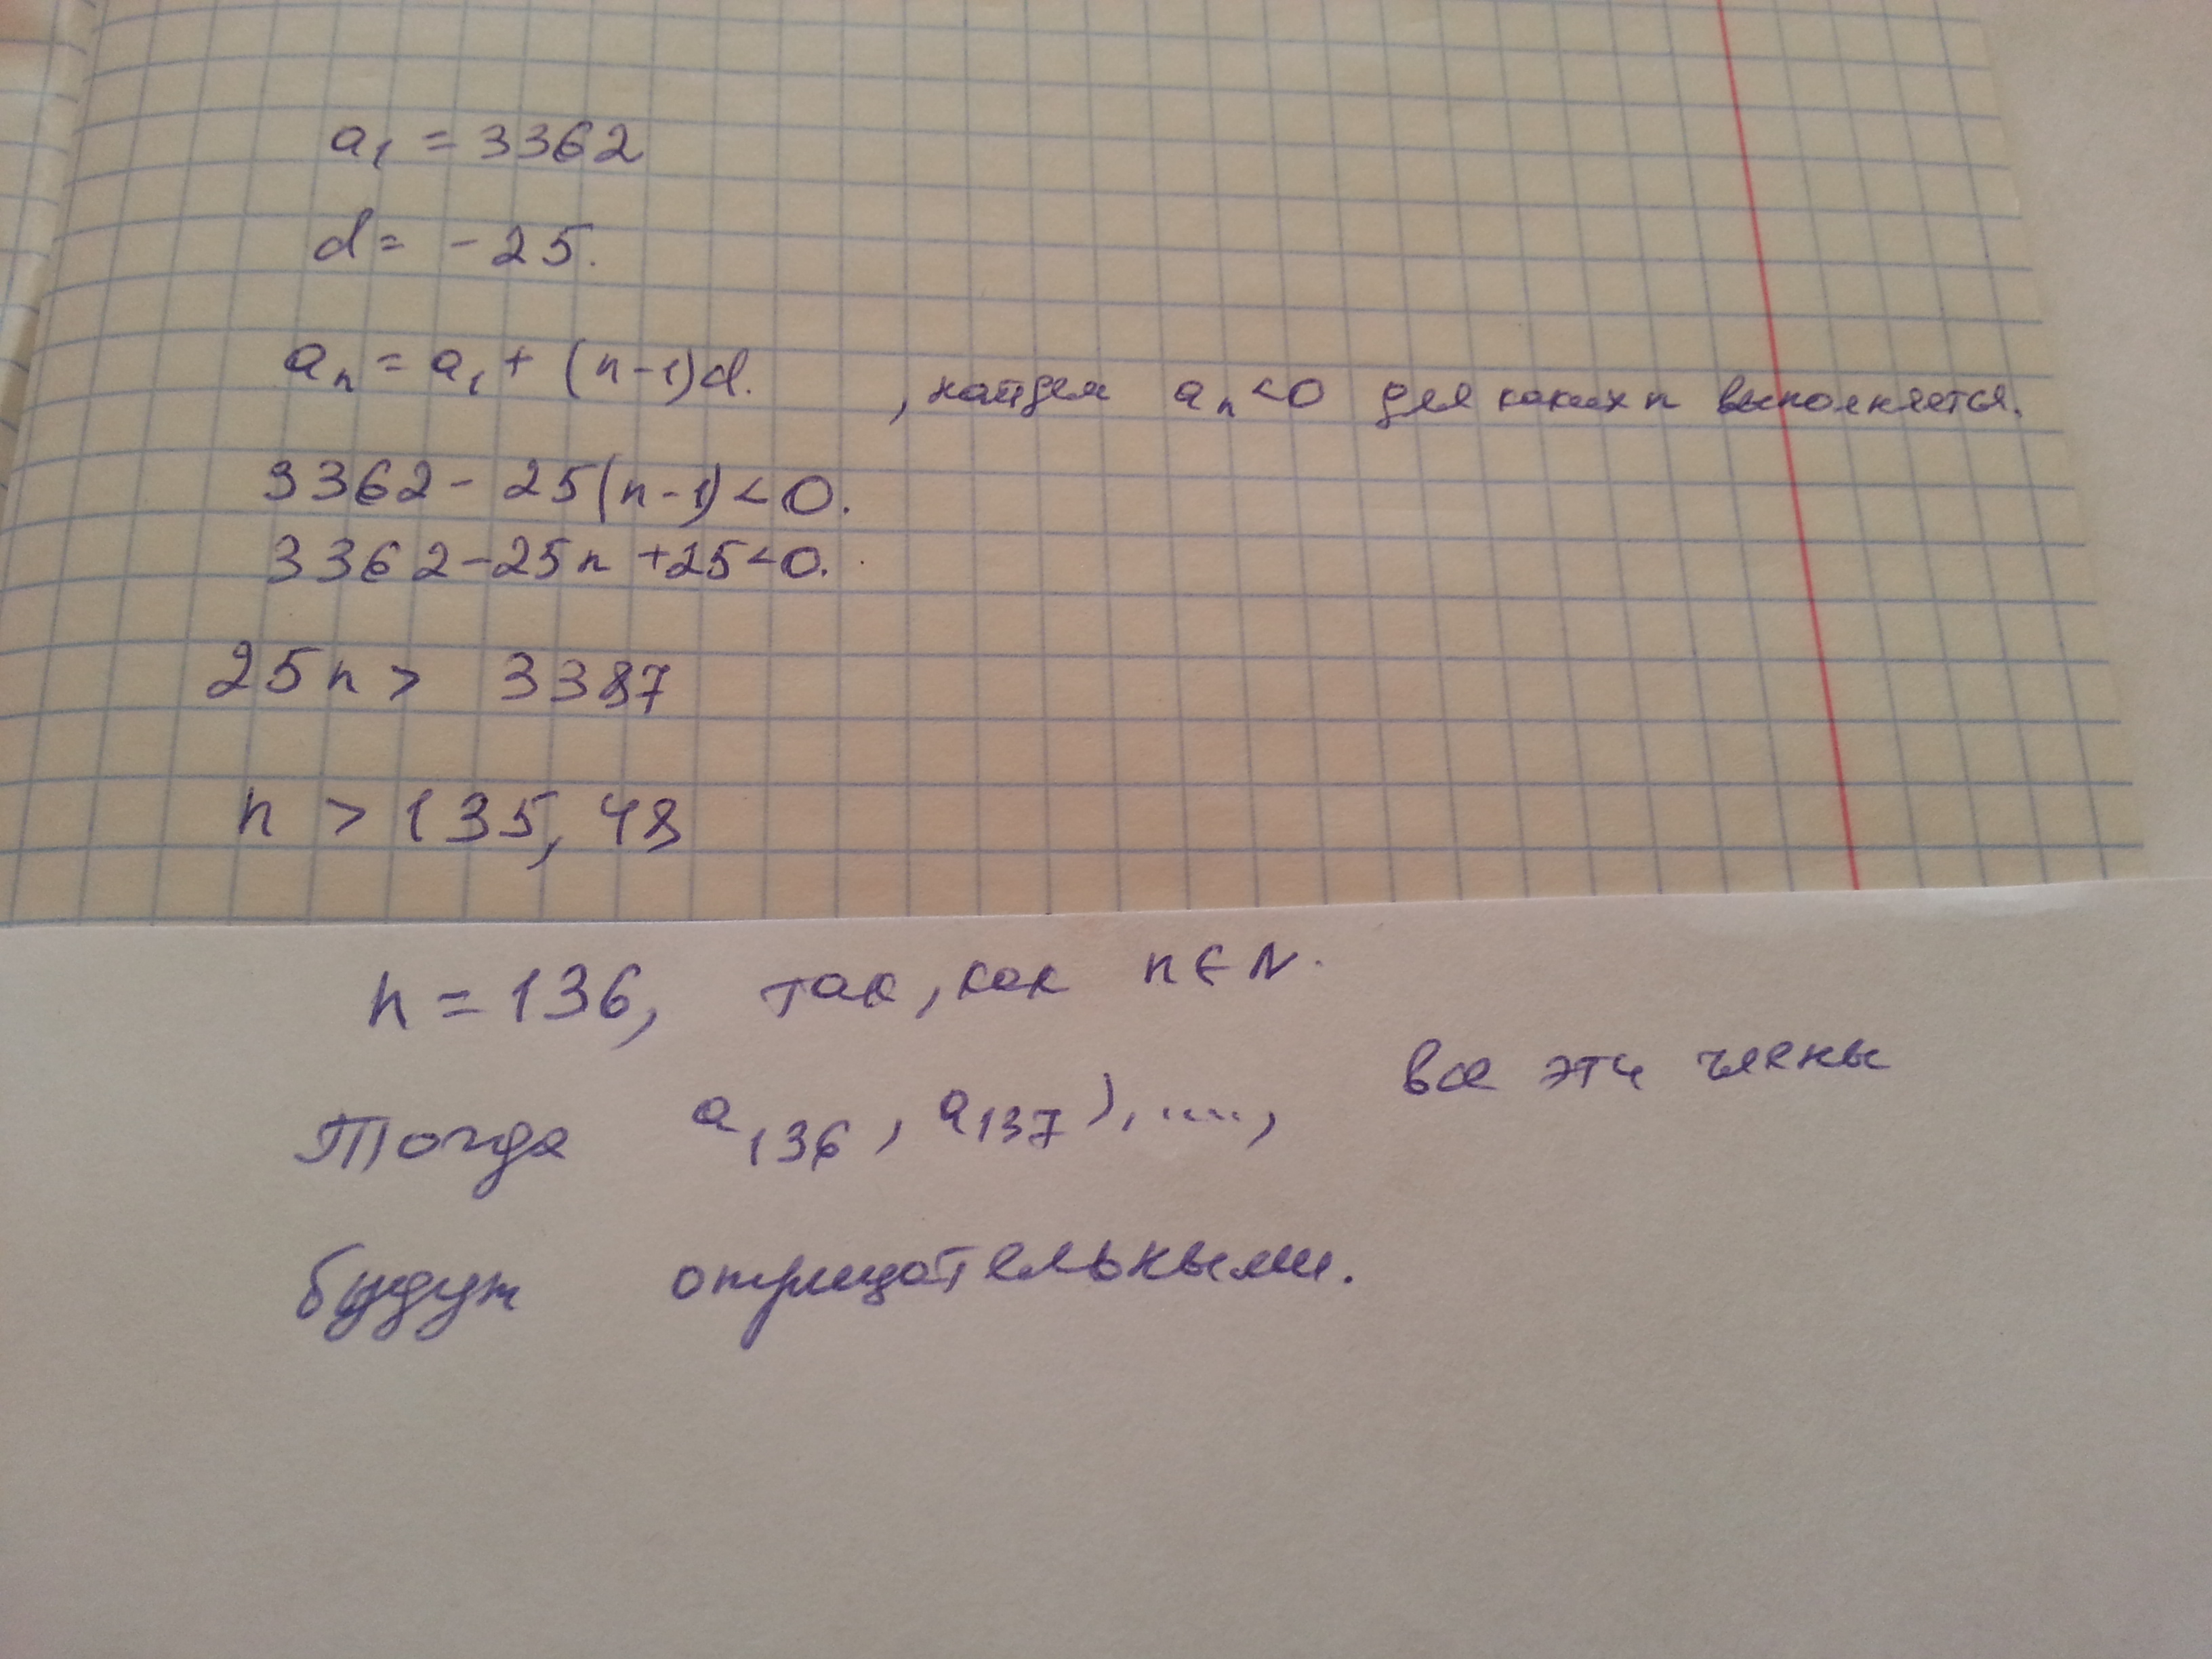 a₁ = 3362
d = -25.
aₙ = a₁ + (n-1)d. , найдем aₙ<0 для каких n выполняется.
3362 - 25(n-1) < 0.
3362-25n +25<0.
25n > 3387
n > 135,48
n = 136, так, как n∈N.
Тогда a₁₃₆, a₁₃₇),...., все эти члены
будут отрицательными.